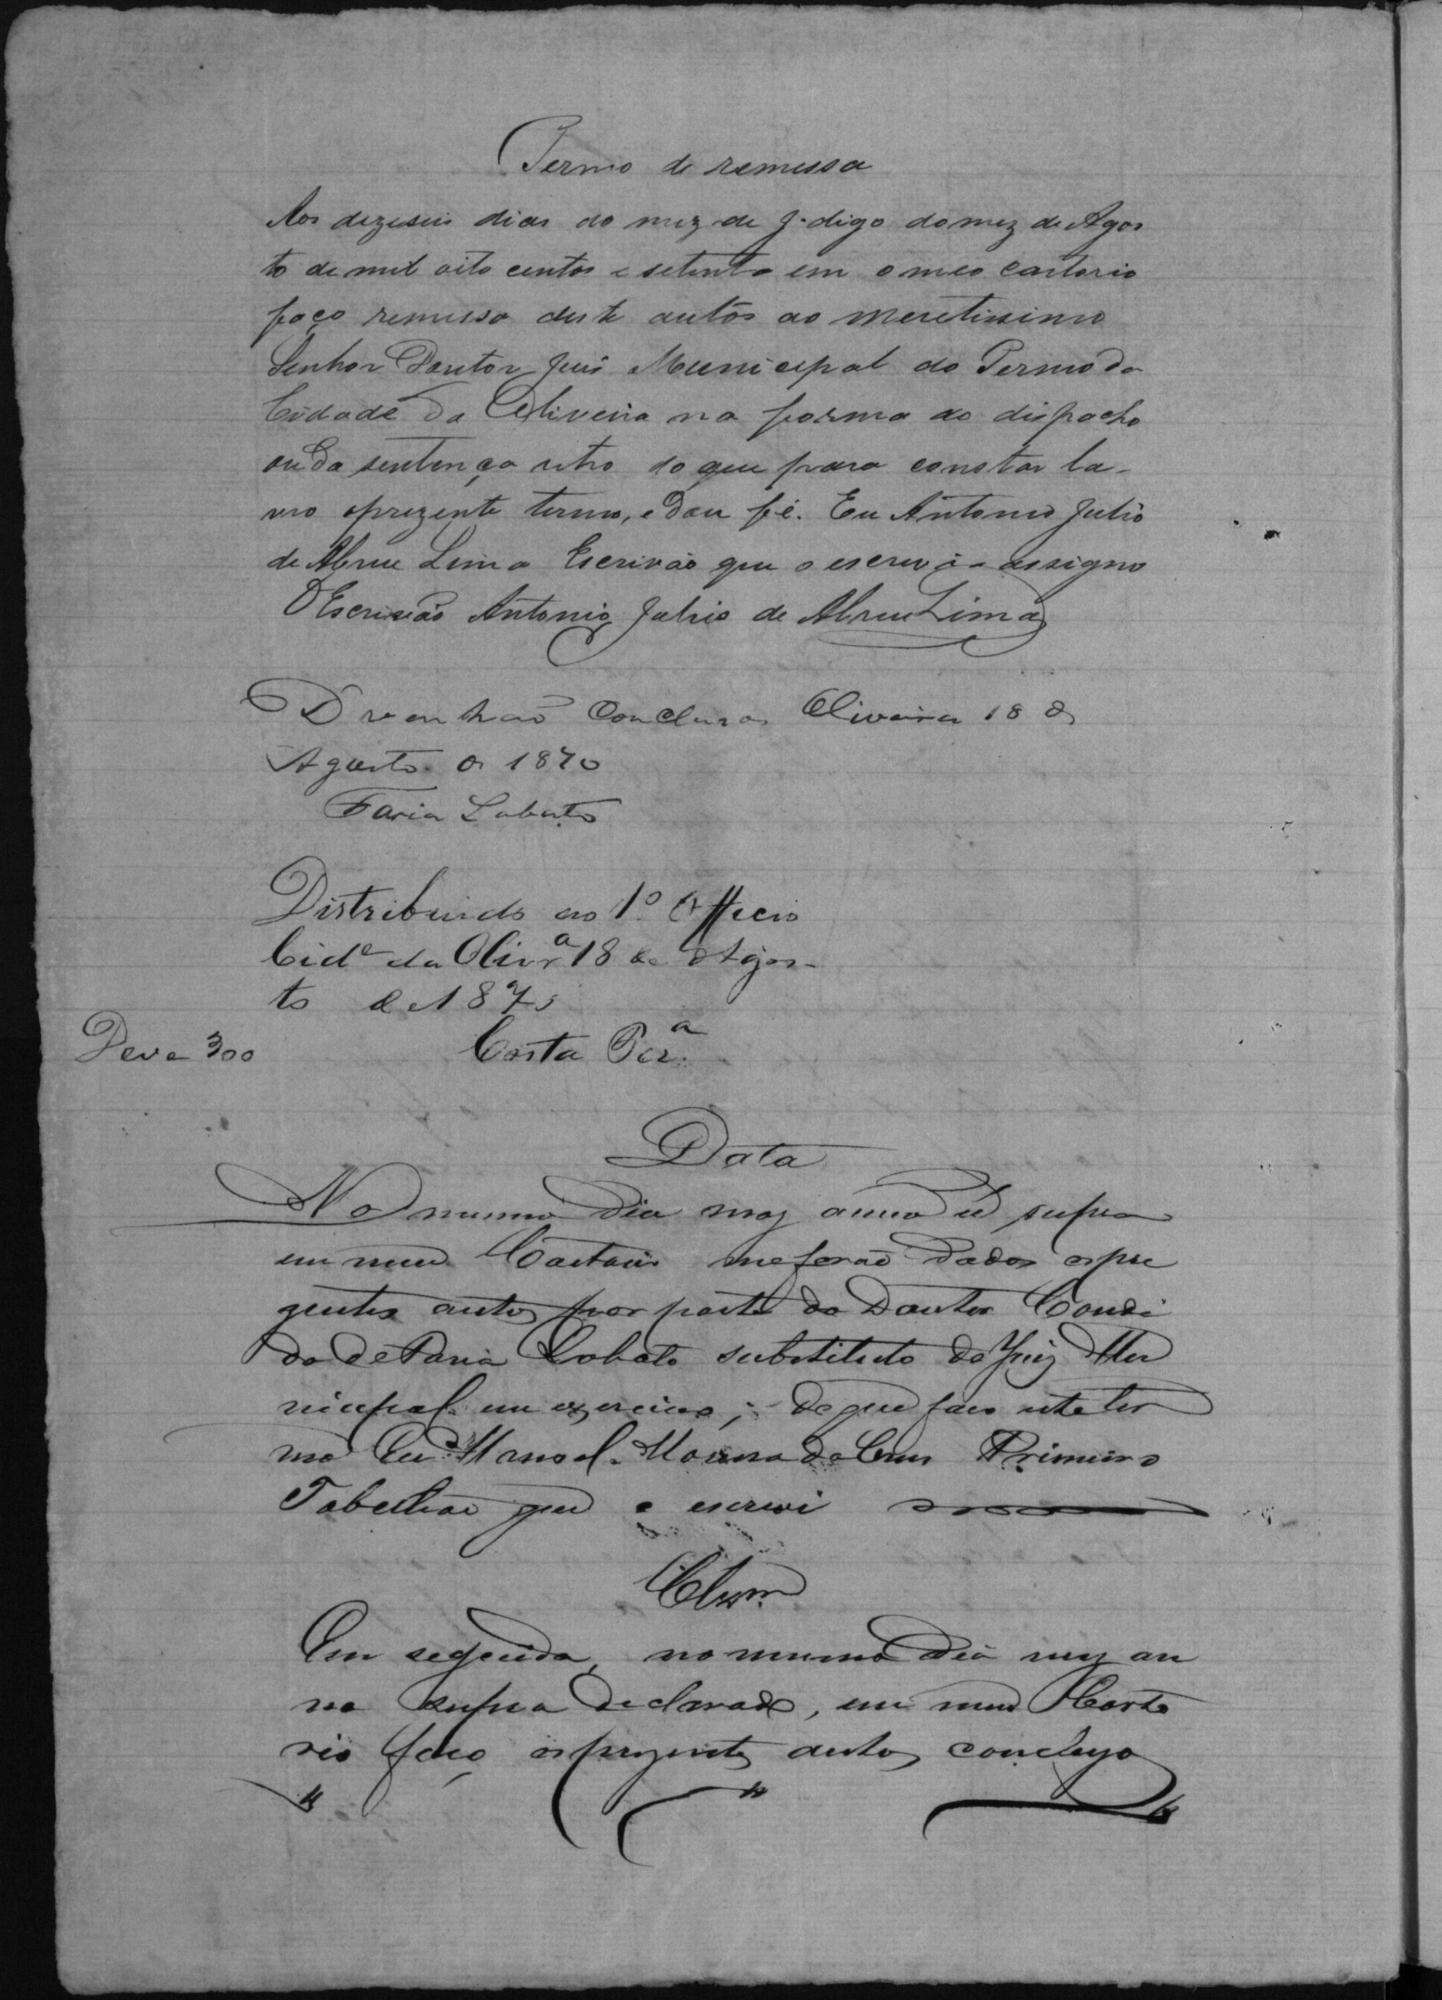 Termo de remessa
Aos dezeseis dias do mez de J. digo do mez de Agos
to de mil oito centos e setenta em o meo cartorio
faço remessa deste autos ao meretissimo
Senhor Doutor Juis Municipal do Termo da
Cidade da Oliveira na forma do dispacho
ou da sentença retro do que para constar la-
vro o prezente termo, e dou fé. Eu Antonio Julio
de Abreu Lima Escrivão que o escrevi e assigno
O Escrivão Antonio Julio de Abreu Lima
D venhão conclusos Oliveira 18 de
Agosto de 1870
Faria Lobato
Distribuido ao 1º Officio
Cidᵉ da Olivrᵃ 18 de Agos-
to de 1870
Deve 300 Costa Perᵃ
Data
No mesmo dia mez anno supra
em meu Cartorio me forão dados os pre
zentes autos por parte do Doutor Candi
do de Faria Lobato substituto do Juiz Mu
nicipal em exercicio; de que faço este ter
mo Eu Manoel Morera da Crus Primeiro
Tabellião que o escrevi
Clsm.
Em seguida, no mesmo dia mez an
no supra declarado, em meu Carto
rio faço os prezentes autos concluzo